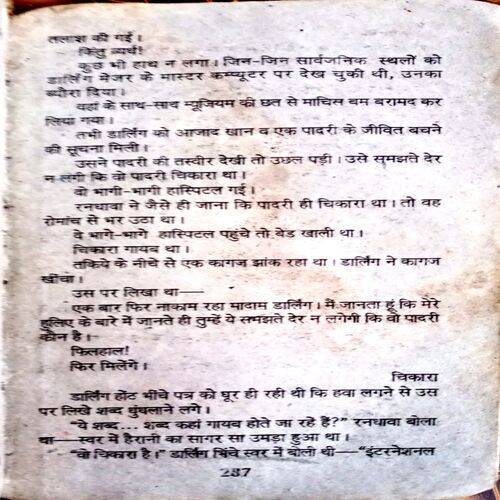 तलाश की गई।
किंतु व्यर्थ!
कुछ भी हाथ न लगा। जिन-जिन सार्वजनिक स्थलों को
डार्लिंग मेजर के मास्टर कम्प्यूटर पर देख चुकी थी, उनका
ब्यौरा दिया।
वहां के साथ-साथ म्यूजियम की छत से माचिस बम बरामद कर
लिया गया।
तभी डार्लिंग को आजाद खान व एक पादरी के जीवित बचने
की सूचना मिली।
उसने पादरी की तस्वीर देखी तो उछल पड़ी। उसे समझते देर
न लगी कि वो पादरी चिकारा था।
वो भागी-भागी हास्पिटल गई।
रनधावा ने जैसे ही जाना कि पादरी ही चिकारा था। तो वह
रोमांच से भर उठा था।
वे भागे-भागे हास्पिटल पहुंचे तो बेड खाली था।
चिकारा गायब था।
तकिये के नीचे से एक कागज झांक रहा था। डार्लिंग ने कागज
खींचा।
उस पर लिखा था—
एक बार फिर नाकाम रहा मादाम डार्लिंग। मैं जानता हूं कि मेरे
हुलिए के बारे में जानते ही तुम्हें ये समझते देर न लगेगी कि वो पादरी
कौन है।
फिलहाल!
फिर मिलेंगे।
चिकारा
डार्लिंग होंट भींचे पत्र को घूर ही रही थी कि हवा लगने से उस
पर लिखे शब्द धुंधलाने लगे।
"ये शब्द... शब्द कहां गायब होते जा रहे हैं?" रनधावा बोला
था—स्वर में हैरानी का सागर सा उमड़ा हुआ था।
"वो चिकारा है।" डार्लिंग भिंचे स्वर में बोली थी—"इंटरनेशनल
287